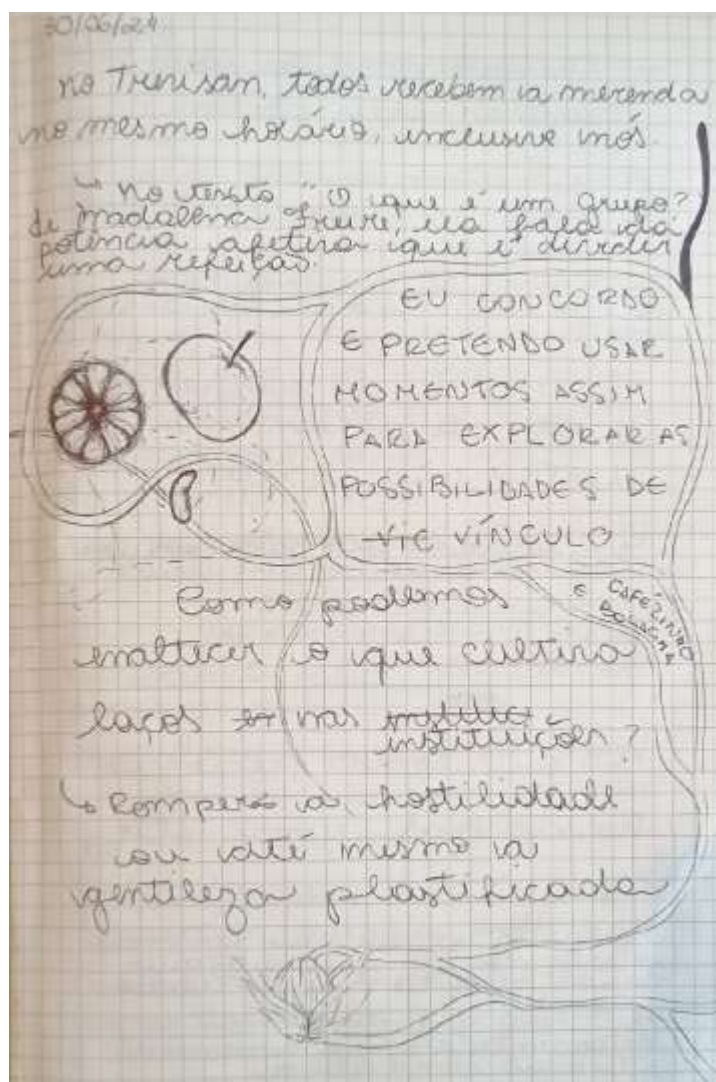 30/06/24
no Trevisan, todos recebem a merenda
no mesmo horário, inclusive nós.
↳ No texto "O que é um grupo?
de Madalena Freire, ela fala da
potência afetiva que é dividir
uma refeição.
EU CONCORDO
E PRETENDO USAR
MOMENTOS ASSIM
PARA EXPLORAR AS
POSSIBILIDADES DE
VIC VÍNCULO
E CAFÉZINHO
BOLACHA
Como podemos
enaltecer o que cultiva
laços em nas institui
instituições?
↳ Romper a hostilidade
ou até mesmo a
gentileza plastificada